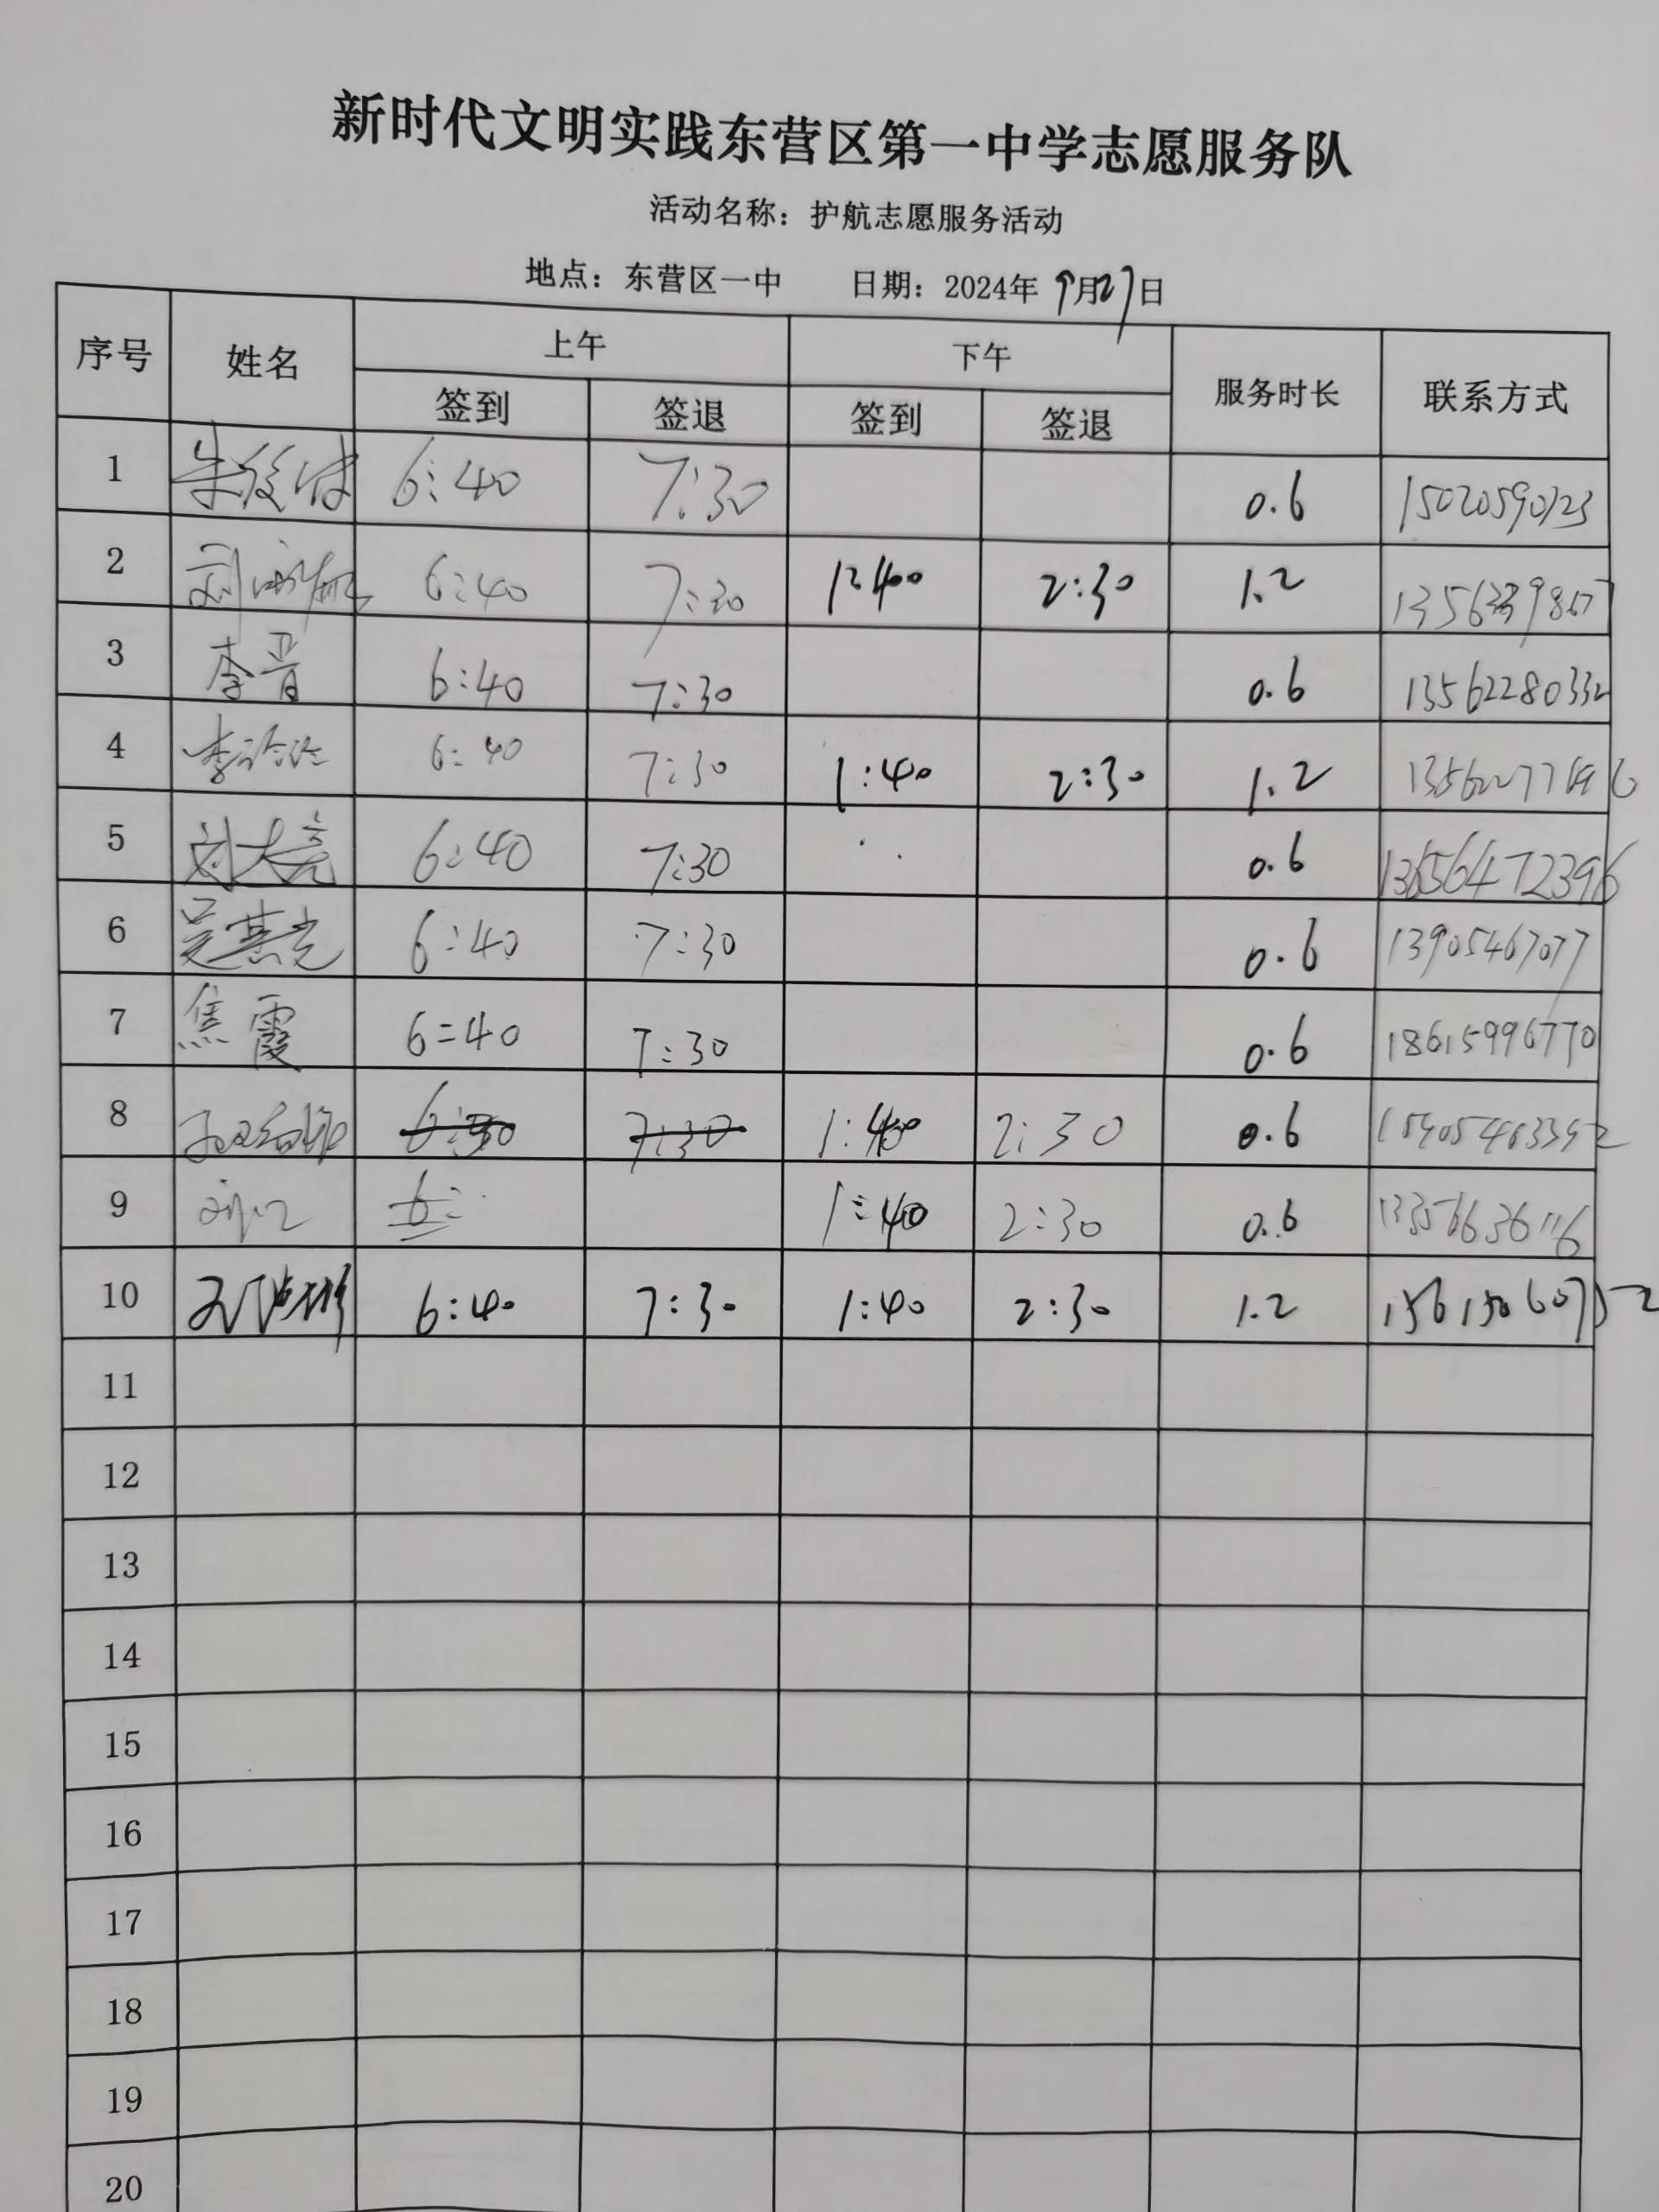 新时代文明实践东营区第一中学志愿服务队
活动名称：护航志愿服务活动
地点：东营区一中 日期：2024年 9月27日
序号 姓名 上午 下午 服务时长 联系方式
签到 签退 签到 签退
1 6:40 7:30 0.6 15020590123
2 6:40 7:30 1:40 2:30 1.2
3 李晋 6:40 7:30 0.6 13562280332
4 6:40 7:30 1:40 2:30 1.2
5 刘大亮 6:40 7:30 0.6
6 吴燕光 6:40 7:30 0.6 13905467077
7 焦霞 6:40 7:30 0.6 18615996770
8 7:30 1:40 2:30 0.6
9 1:40 2:30 0.6
10 6:40 7:30 1:40 2:30 1.2
11
12
13
14
15
16
17
18
19
20